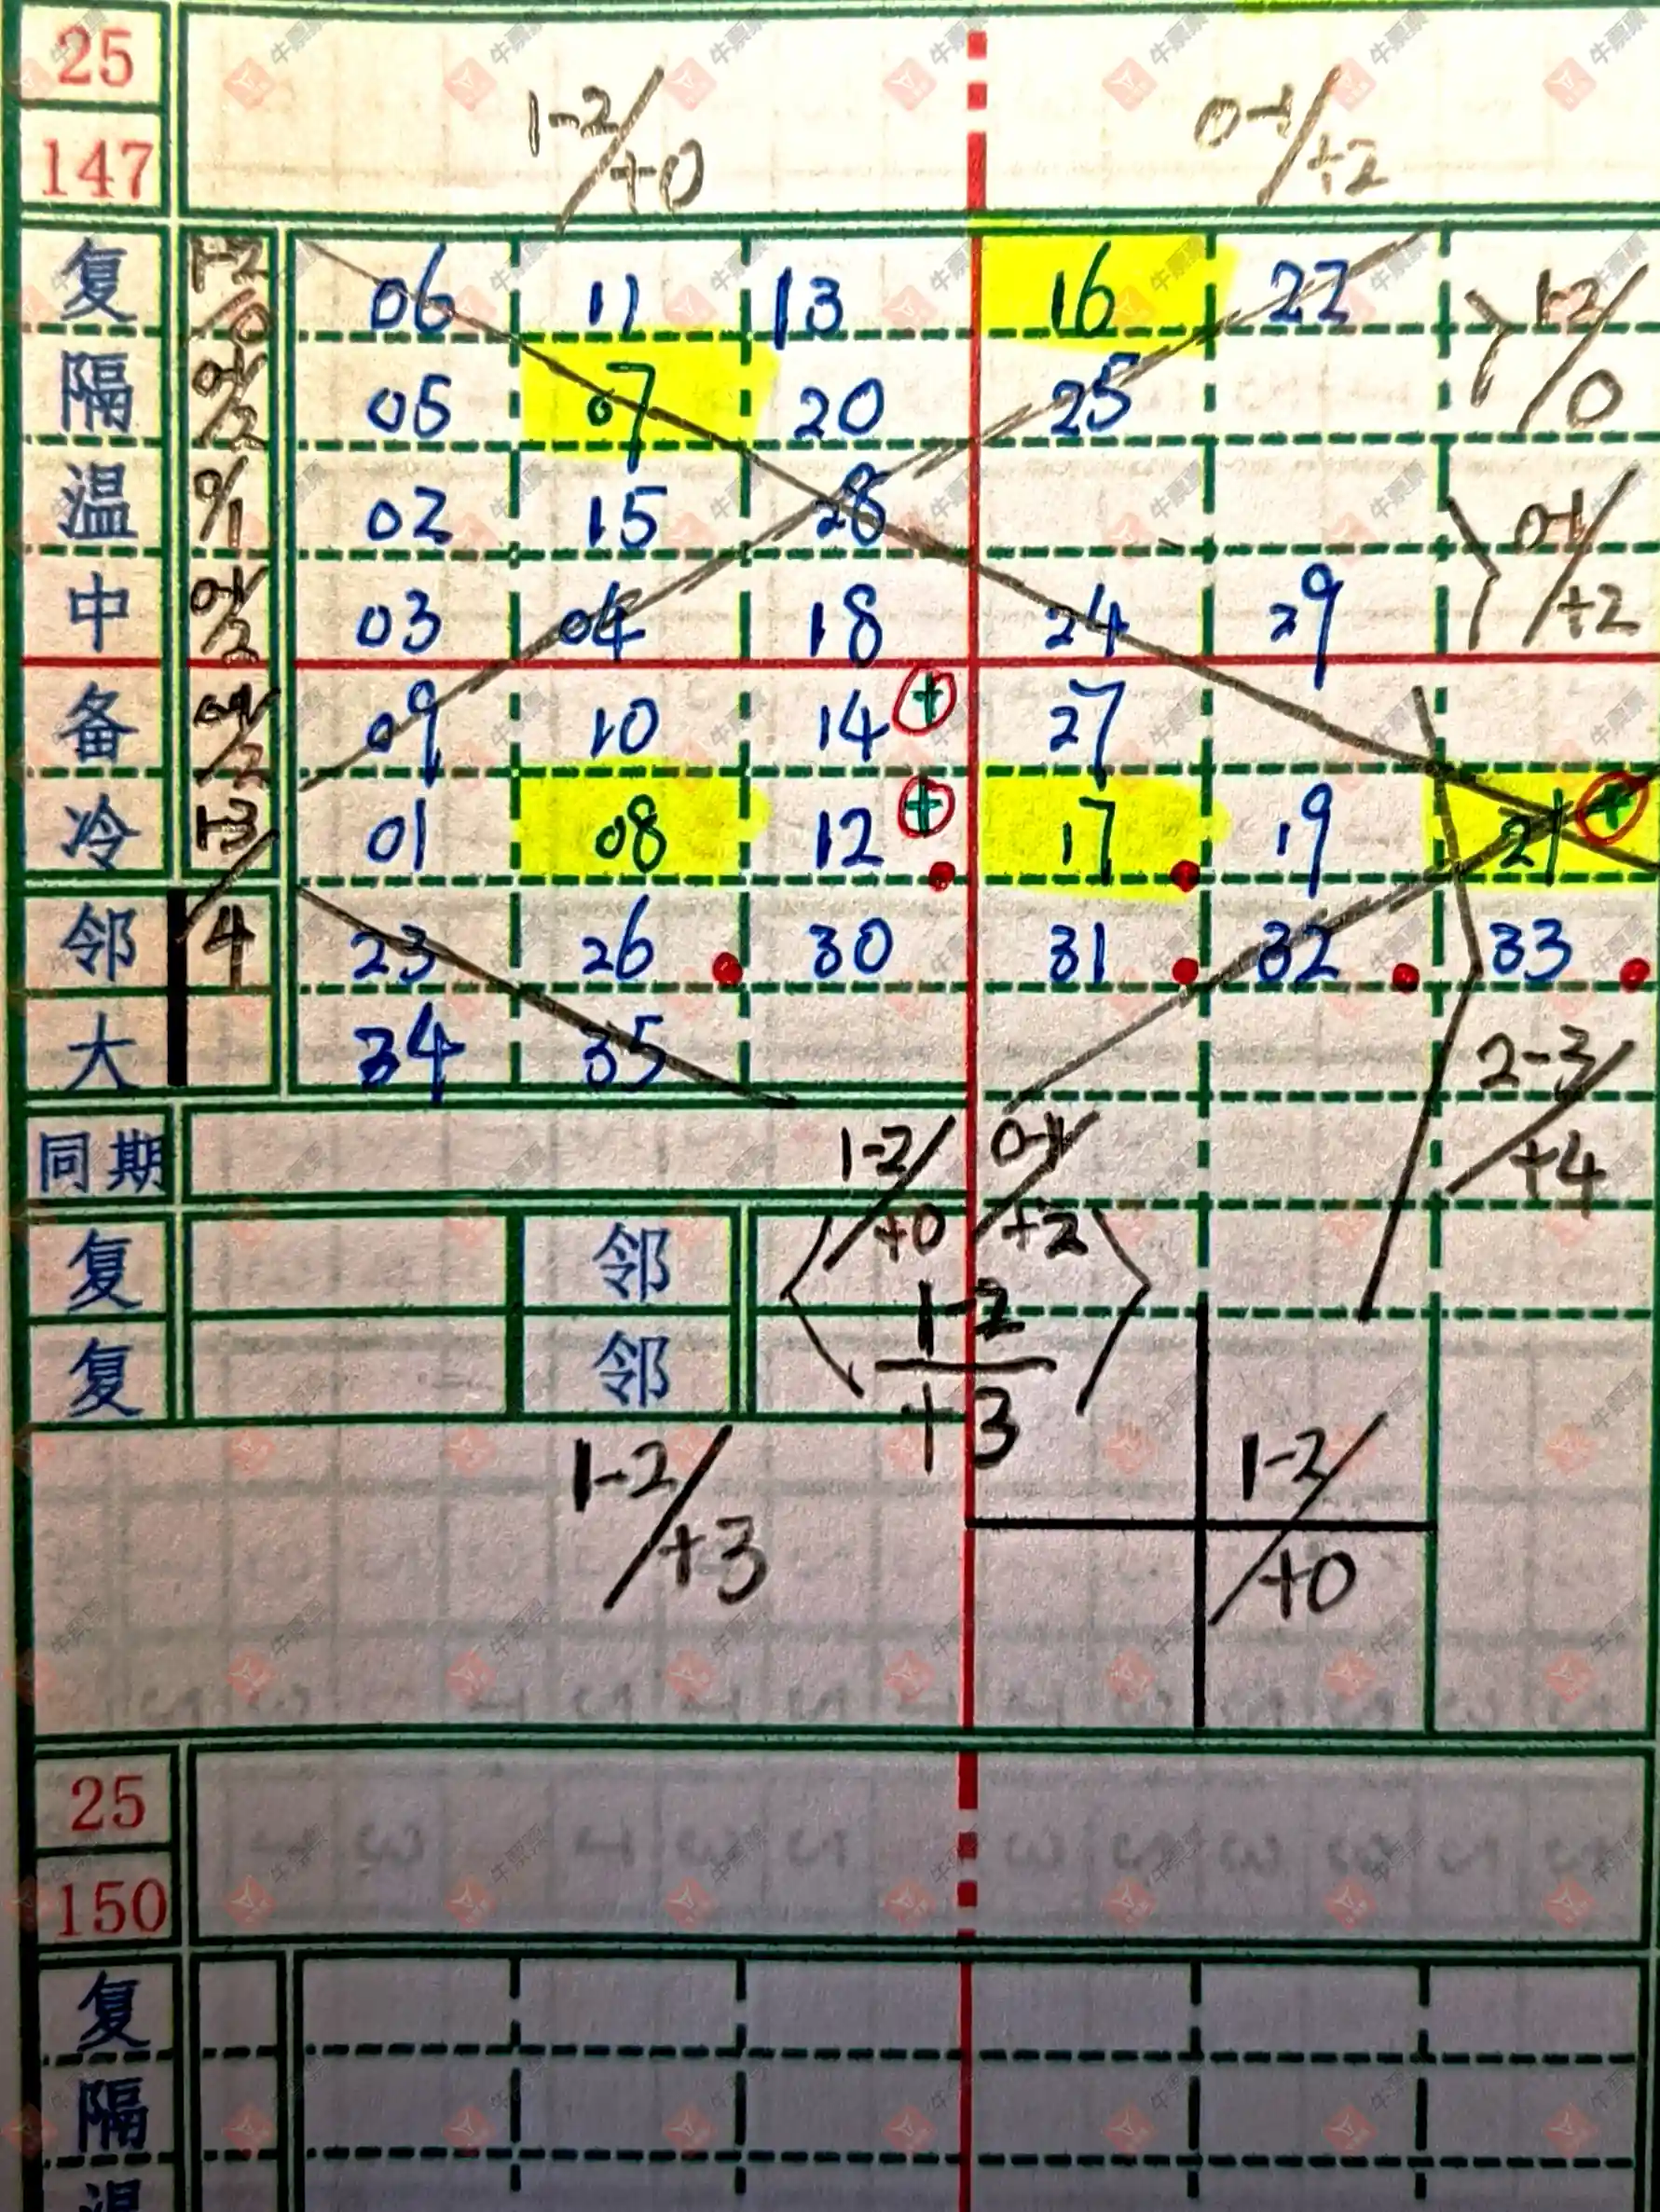 25
147 1-2/+0 0-1/+2
复 1-2/0 06 11 13 16 22 1-2/0
隔 0-1/2 05 07 20 25
温 0/1 02 15 28 0-1/+2
中 0-1/2 03 04 18 24 29
备 0-1/2 09 10 14 + 27
冷 1-3/4 01 08 12 + 17 19 21 +
邻 23 26 30 31 32 33
大 34 35 2-3/+4
同期 1-2/+0 0-1/+2
复 邻 1-2/+3
复 邻
1-2/+3 1-2/+0
25
150
复
隔
温
牛票票